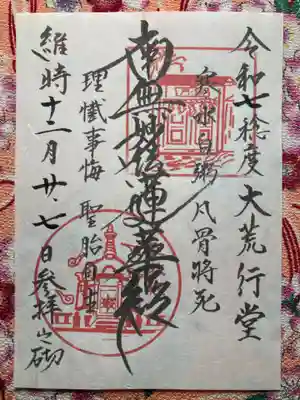 令和七稔度 大荒行堂
寒水白粥 凡骨将死
南無妙法蓮華経
理懺事悔 聖胎自生
維時十二月廿、七日参拝之砌